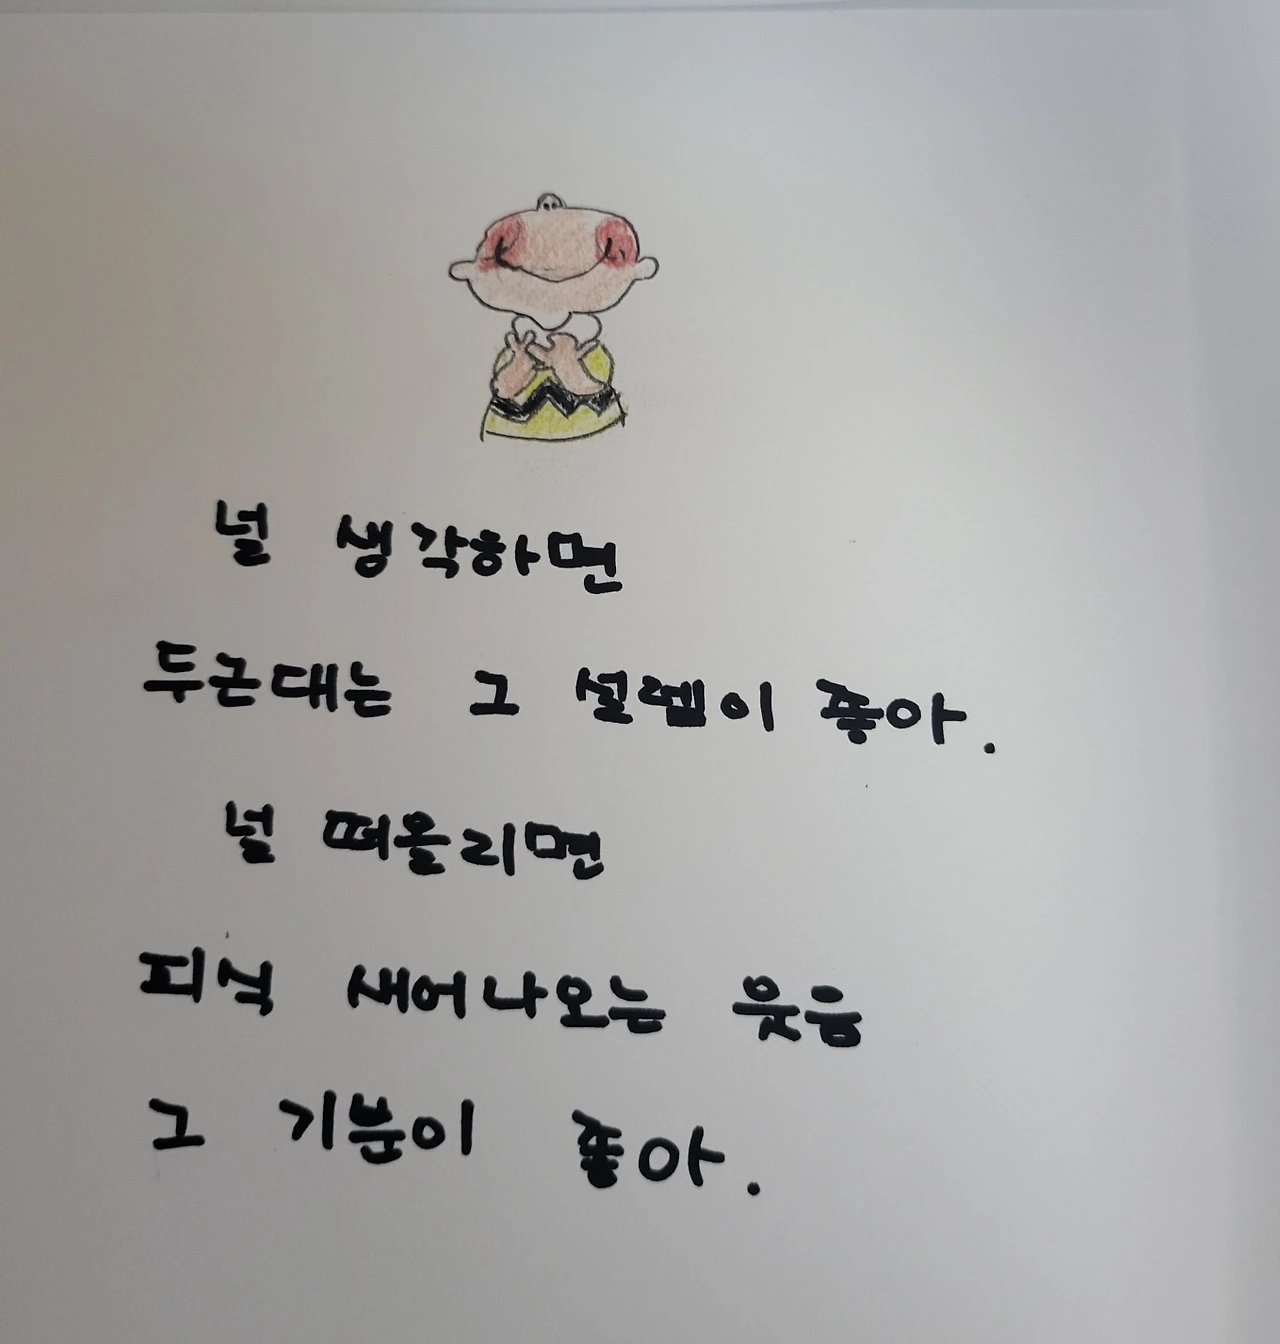 널 생각하면
두근대는 그 설렘이 좋아.
널 떠올리면
피식 새어나오는 웃음
그 기분이 좋아.